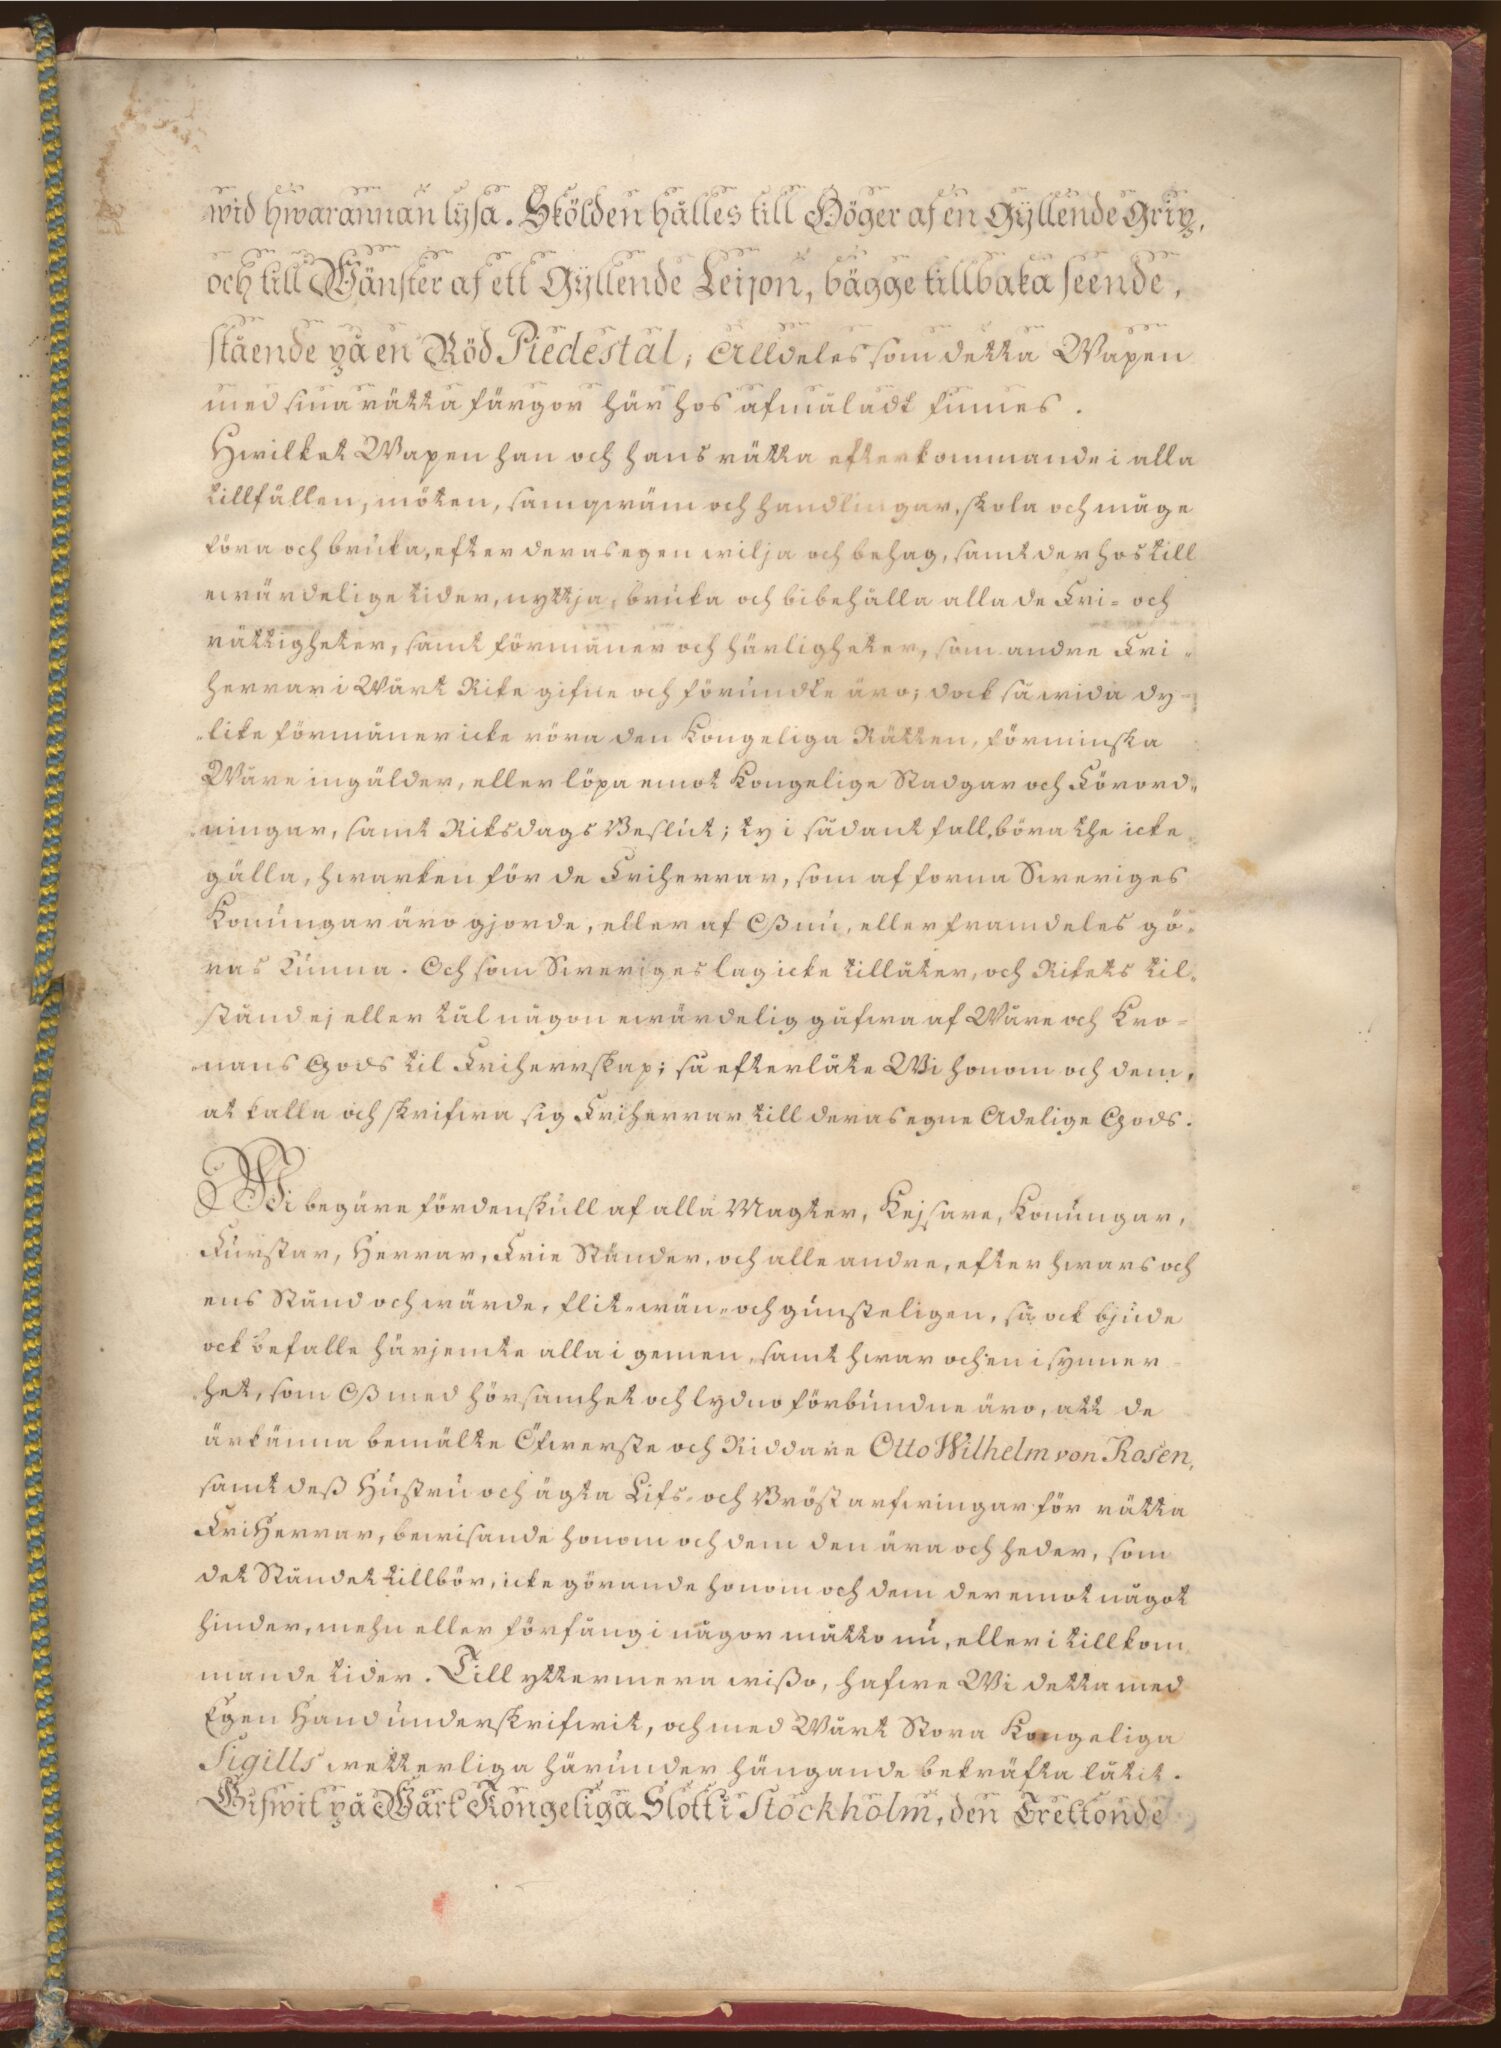 wid hwarannan lysa. Skölden hålles till Höger af en Gyllende Grip,
och till Wänster af ett Gyllende Leijon, bägge tillbaka seende,
stående på en Röd Piedestal; Alldeles som detta Wapen
med sina rätta färgor här hos afmåladt finnes.
Hwilket Wapen han och hans rätta efterkommande i alla
tillfällen, möten, samqwäm och handlingar, skola och måge
föra och bruka, efter deras egen wilja och behag, samt der hos till
ewärdelige tider, nyttja, bruka och bibehålla alla de Fri- och
rättigheter, samt förmåner och härligheter, som andre Fri-
herrar i Wårt Rike gifne och förundte äro; dock så wida dy-
-like förmåner icke röra den Kongeliga Rätten, förminska
Wåre ingälder, eller löpa emot Kongelige Stadgar och Förord-
-ningar, samt Riksdags Beslut; ty i sådant fall, böra the icke
gälla, hwarken för de Friherrar, som af forna Sweriges
Konungar äro gjorde, eller af Oß nu, eller framdeles gö-
ras kunna. Och som Sweriges lag icke tillåter, och Rikets til-
stånd ej eller tål någon ewärdelig gåfwa af Wåre och Kro-
-nans Gods til Friherrskap; så efterlåte Wi honom och dem,
at kalla och skrifwa sig Friherrar till deras egne Adelige Gods.
Wi begäre fördenskull af alla Magter, Kejsare, Konungar,
Furstar, Herrar, Frie Ständer, och alle andre, efter hwars och
ens Stånd och wärde, flit- wän- och gunsteligen, så ock bjude
ock befalle härjemte alla i gemen, samt hwar och en i synner-
het, som Oß med hörsamhet och lydno förbundne äro, att de
ärkänna bemälte Öfwerste och Riddare Otto Wilhelm von Rosen,
samt deß Hustru och ägta Lifs- och Bröst arfwingar för rätta
FriHerrar, bewisande honom och dem den ära och heder, som
det Ståndet tillbör, icke görande honom och dem deremot något
hinder, mehn eller förfång i någor måtto nu, eller i tillkom-
mande tider. Till yttermera wißo, hafwe Wi detta med
Egen Hand underskrifwit, och med Wårt Stora Kongeliga
Sigills wetterliga härunder hängande bekräfta låtit.
Gifwit på Wårt Kongeliga Slott i Stockholm, den Trettonde